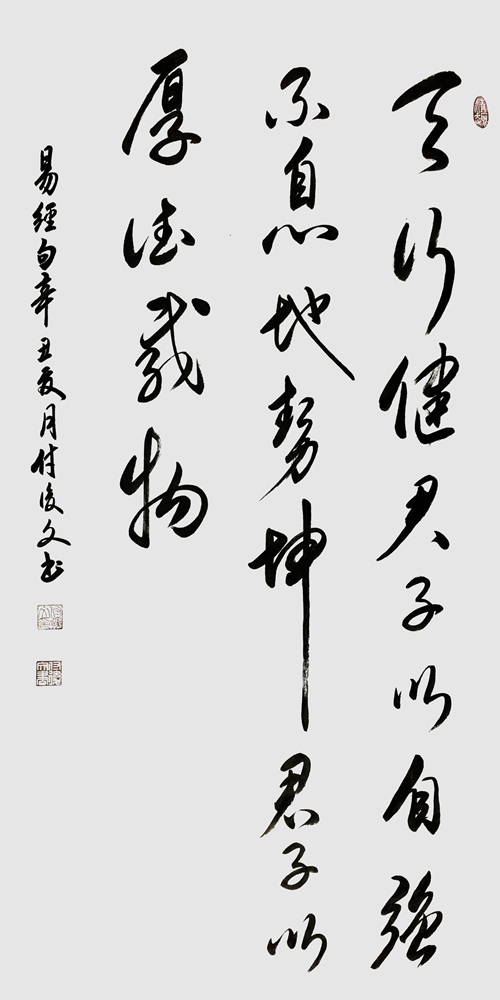 天行健君子以自強
不息地勢坤君子以
厚德載物
易經句辛丑夏月付俊文书